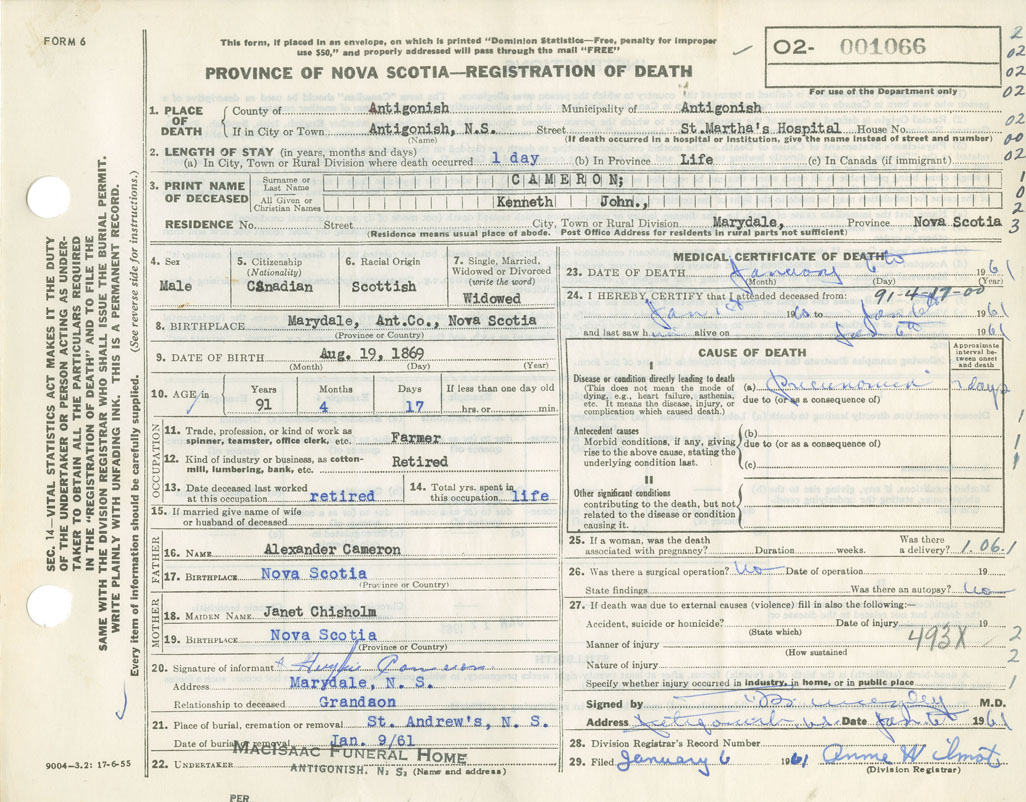 FORM 6
This form, if placed in an envelope, on which is printed "Dominion Statistics—Free, penalty for improper
use $50," and properly addressed will pass through the mail "FREE"
02- 001066
For use of the Department only
PROVINCE OF NOVA SCOTIA—REGISTRATION OF DEATH
1. PLACE OF DEATH
County of Antigonish Municipality of Antigonish
If in City or Town Antigonish, N.S. Street St.Martha's Hospital House No.
(Name) (If death occurred in a hospital or institution, give the name instead of street and number)
2. LENGTH OF STAY (in years, months and days)
(a) In City, Town or Rural Division where death occurred 1 day (b) In Province Life (c) In Canada (if immigrant)
3. PRINT NAME OF DECEASED
Surname or Last Name CAMERON;
All Given or Christian Names Kenneth John.,
RESIDENCE No. Street City, Town or Rural Division Marydale, Province Nova Scotia
(Residence means usual place of abode. Post Office Address for residents in rural parts not sufficient)
4. Sex
Male
5. Citizenship
(Nationality)
Canadian
6. Racial Origin
Scottish
7. Single, Married,
Widowed or Divorced
(write the word)
Widowed
8. BIRTHPLACE Marydale, Ant.Co., Nova Scotia
(Province or Country)
9. DATE OF BIRTH Aug. 19, 1869
(Month) (Day) (Year)
10. AGE in
Years Months Days If less than one day old
91 4 17 hrs. or min.
OCCUPATION
11. Trade, profession, or kind of work as
spinner, teamster, office clerk, etc. Farmer
12. Kind of industry or business, as cotton-
mill, lumbering, bank, etc. Retired
13. Date deceased last worked
at this occupation retired
14. Total yrs. spent in
this occupation life
15. If married give name of wife
or husband of deceased
FATHER
16. NAME Alexander Cameron
17. BIRTHPLACE Nova Scotia
(Province or Country)
MOTHER
18. MAIDEN NAME Janet Chisholm
19. BIRTHPLACE Nova Scotia
(Province or Country)
20. Signature of informant Hughie Cameron
Address Marydale, N. S.
Relationship to deceased Grandson
21. Place of burial, cremation or removal St. Andrew's, N. S.
Date of burial or removal Jan. 9/61
22. UNDERTAKER MACISAAC FUNERAL HOME
ANTIGONISH. N. S. (Name and address)
PER
9004-3.2: 17-6-55
MEDICAL CERTIFICATE OF DEATH
23. DATE OF DEATH January 6th 1961
(Month) (Day) (Year)
91-4-17-00
24. I HEREBY CERTIFY that I attended deceased from:
19 to Jan 6th 1961
and last saw h alive on Jan 6th 1961
CAUSE OF DEATH
Approximate
interval be-
tween onset
and death
I
Disease or condition directly leading to death
(This does not mean the mode of
dying, e.g., heart failure, asthenia,
etc. It means the disease, injury, or
complication which caused death.)
(a) Pneumonia days
due to (or as a consequence of)
Antecedent causes
Morbid conditions, if any, giving
rise to the above cause, stating the
underlying condition last.
(b)
due to (or as a consequence of)
(c)
II
Other significant conditions
contributing to the death, but not
related to the disease or condition
causing it.
25. If a woman, was the death
associated with pregnancy? Duration weeks. Was there
a delivery? 1.06.1
26. Was there a surgical operation? No Date of operation 19
State findings Was there an autopsy? No
27. If death was due to external causes (violence) fill in also the following:—
Accident, suicide or homicide? Date of injury 19
(State which)
Manner of injury 493X
(How sustained
Nature of injury
Specify whether injury occurred in industry, in home, or in public place
Signed by M.D.
Address Antigonish N.S. Date Jan 6th 1961
28. Division Registrar's Record Number
29. Filed January 6 1961 Anne W Wilmot
(Division Registrar)
SEC. 14—VITAL STATISTICS ACT MAKES IT THE DUTY
OF THE UNDERTAKER OR PERSON ACTING AS UNDER-
TAKER TO OBTAIN ALL THE PARTICULARS REQUIRED
IN THE "REGISTRATION OF DEATH" AND TO FILE THE
SAME WITH THE DIVISION REGISTRAR WHO SHALL ISSUE THE BURIAL PERMIT.
WRITE PLAINLY WITH UNFADING INK. THIS IS A PERMANENT RECORD.
Every item of information should be carefully supplied. (See reverse side for instructions.)
2
02
02
02
02
00
02
1
0
2
3
1
1
1
2
2
1